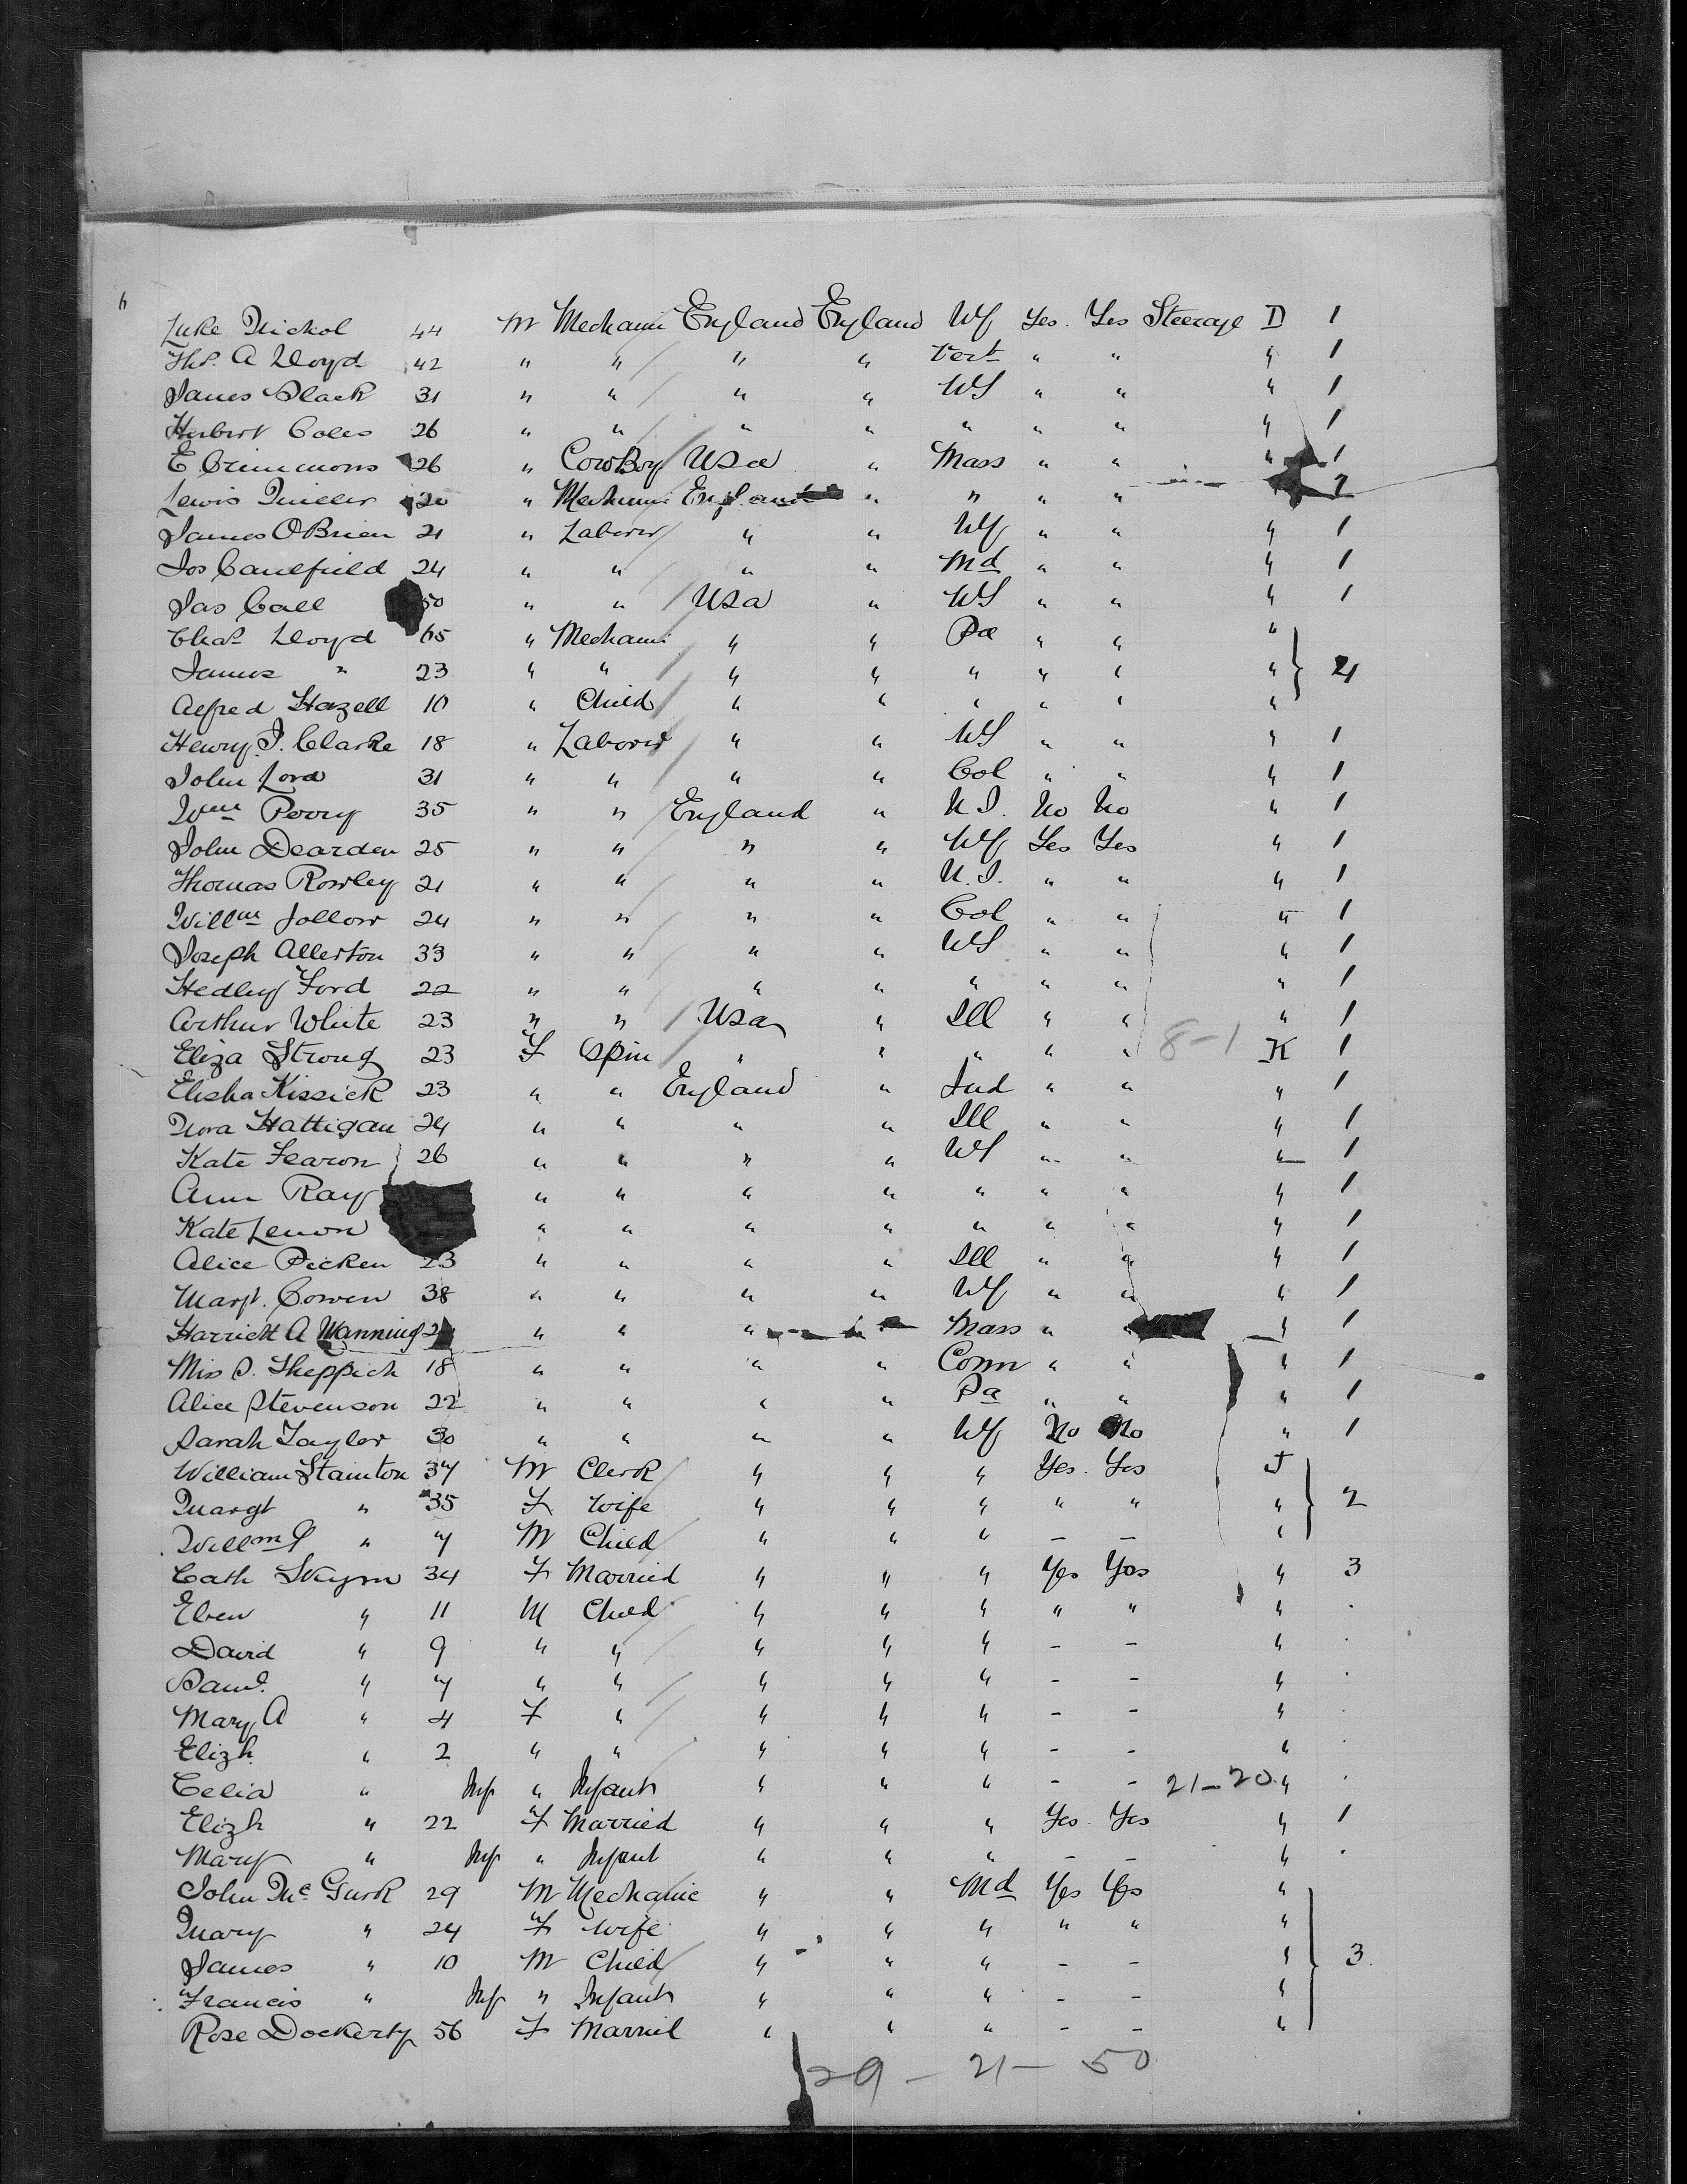 Luke Nickol 44 M Mechanic England England NY Yes. Yes Steerage D 1
Thos. A Lloyd 42 " " " " Vert " " " 1
James Black 31 " " " " NY " " " 1
Herbert Coles 26 " " " " " " " " 1
E Crimmons 26 " CowBoy USA " Mass " " " 1
Lewis 20 " Mechanic England " " " "
James OBrien 21 " Laborer " " NY " " " 1
Jos Caulfield 24 " " " " Md " " " 1
Jas Call 50 " " USA " NY " " " 1
Chas Lloyd 65 " Mechanic " " Pa " " "
James " 23 " " " " " " " " 2
Alfred Hazell 10 " Child " " " " " "
Henry J. Clarke 18 " Laborer " " NY " " " 1
John Lord 31 " " " " Col " " " 1
Wm Perry 35 " " England " N J. No No " 1
John Dearden 25 " " " " NY Yes Yes " 1
Thomas Rowley 21 " " " " N.J. " " " 1
Willm Jollow 24 " " " " Col " " " 1
Joseph Allerton 33 " " " " NY " " " 1
Hedley Ford 22 " " " " " " " " 1
Arthur White 23 " " USA " Ill " " " 1
Eliza Strong 23 F Spin " " " " " 8-1 K 1
Elisha Kissick 23 " " England " Ind " " " 1
Nora Hattigan 24 " " " " Ill " " " 1
Kate Fearon 26 " " " " NY " " " 1
Ann Ray " " " " " " " " 1
Kate Lenon " " " " " " " " 1
Alice Picken 23 " " " " Ill " " " 1
Margt. Cowen 38 " " " " NY " " " 1
Harriett A Manning " " " " Mass " " " 1
Miss S. Sheppich 18 " " " " Conn " " " 1
Alice Stevenson 22 " " " " Pa " " " 1
Sarah Taylor 30 " " " " NY No No " 1
William Stainton 37 M Clerk " " " Yes. Yes J
Margt " 35 F Wife " " " " " " 2
Willm " 7 M Child " " " - - "
Cath Skyrm 34 F Married " " " Yes Yes " 3
Eben " 11 M Child " " " " " " .
David " 9 " " " " " - - " .
Saml. " 7 " " " " " - - " .
Mary A " 4 F " " " " - - " .
Elizh. " 2 " " " " " - - " .
Celia " Inf " Infant " " " - - 21-20 " .
Elizh " 22 F Married " " " Yes. Yes " 1
Mary " Inf " Infant " " " - - " .
John McGurk 29 M Mechanic " " Md Yes Yes "
Mary " 24 F Wife " " " " " "
James " 10 M Child " " " - - " 3.
Francis " Inf " Infant " " " - - "
Rose Dockerty 56 F Married " " " - - "
29 - 21 - 50